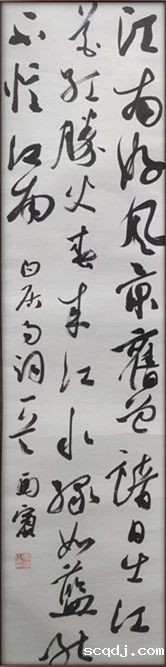 江南好風景舊曾諳日出江
花紅勝火春來江水綠如藍能
不憶江南
白居易詞一首
scqdj.com